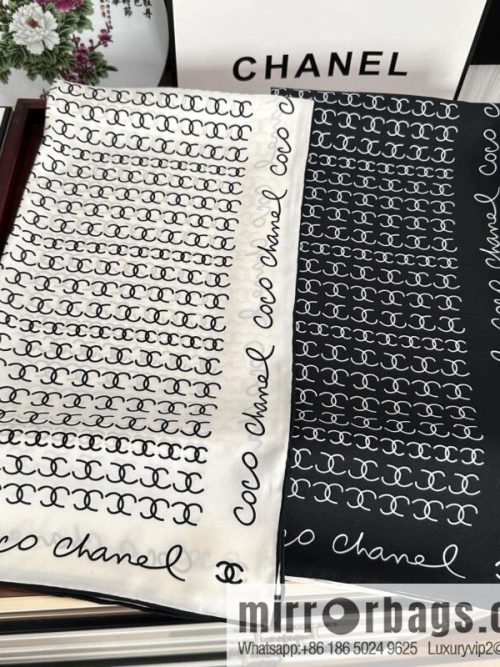 牡丹
CHANEL
coco
coco
coco chanel
coco chanel
co chanel
co chanel
mirrorbags.c
Whatsapp:+86 186 5024 9625 Luxuryvip2@